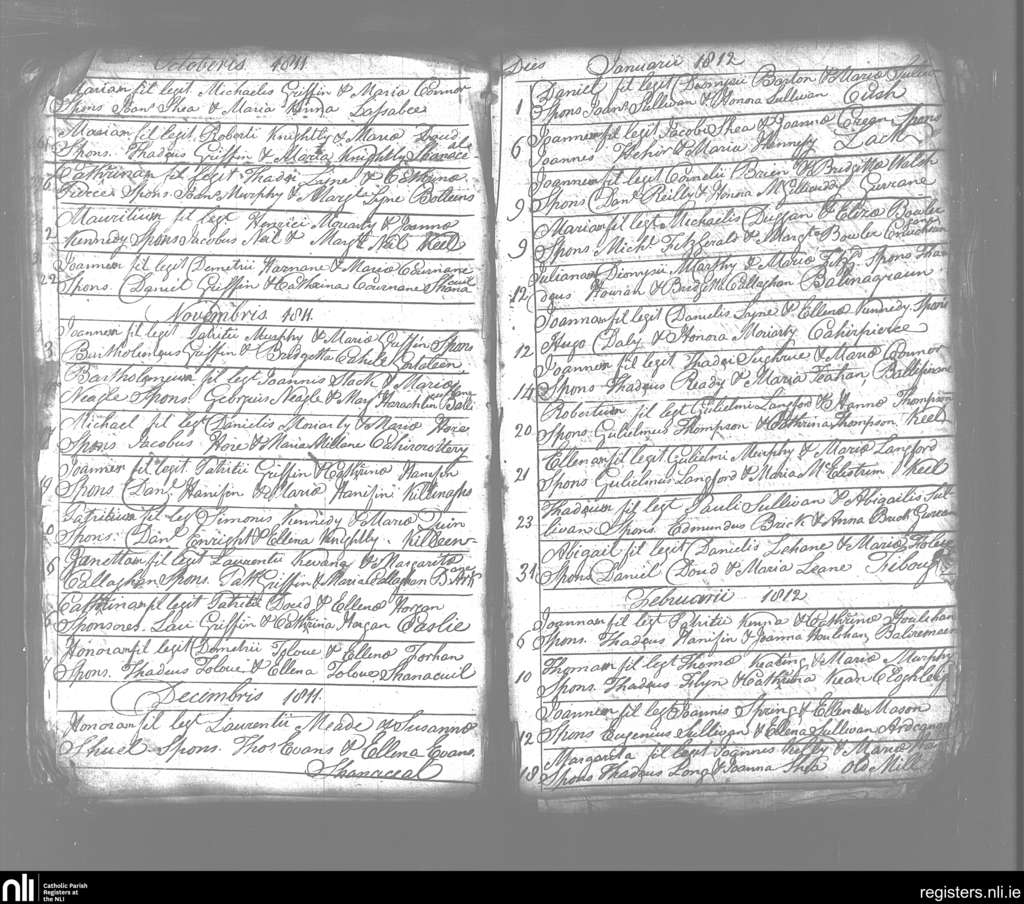 Octoberis 1811
Mariam fil legit Michaelis Griffin & Maria Connor
Spons Joan Shea & Maria Kinna
Mariam fil legit. Roberti Knightly & Maria Doud
Spons. Thadeus Griffin & Maria Knightly Shanaceal
Cathrinam fil legit Thadei Lyne & Cathrina
Pierce Spons Joan Murphy & Margt Lyne Botteens
Mauritium fil legt Henrici Moriarty & Joanna
2 Kennedy Spons Jacobus Neil & Margt Neil Keel
Joannem fil legit Demetrii Harnane & Maria Cournane
22 Spons. Daniel Griffin & Cathrina Cournane Shanacuil
Novembris 1811.
Joannem fil legit Patritii Murphy & Maria Griffin Spons
3 Bartholomeus Griffin & Bridgetta Cahill
Bartholomeum fil legt Joannis Sack & Maria
Neagle Spons. Neagle & Mary
Michael fil legt Danielis Moriarty & Maria Hore
Spons Jacobus Hore & Maria Millane
Joannem fil legit. Patritii Griffin & Cathrina Hanifin
Spons Danl Hanifin & Maria Hanifin
Patritium fil legt Simonis Kennedy & Maria Quin
Spons. Danl Enright & Ellena Knightly. Killeen
Janettam fil legit Laurentii Kevane & Margareta
6 Callaghan Spons. Patt Griffin & Maria Callaghan
Cathrinam fil legit Patritii Doud & Ellena Horgan
Sponsores. Lau Griffin & Cathrina Horgan Caslie
Honoram fil legit Demetrii Toloue & Ellena Forhan
Spons. Thadeus Toloue & Ellena Toloue Shanacuil
Decembris 1811.
Honoram fil legt Laurentii Meade & Susanna
Shuel Spons. Thos Evans & Ellena Evans.
Shanaceal
Dies Januarii 1812
Daniel fil legit Dionysii Barton & Maria
1 Spons Joans Sullivan & Honora Sullivan
Joannem fil legit Jacobi Shea & Joanna Cregan Spons
6 Joannes Hehir & Maria Flannery Lack
Joannem fil legit Cornelii Brien & Bridgitta Walsh
9 Spons Danl Reilly & Honora Gurrane
Mariam fil legt Michaelis Duggan & Eliza Bowler
9 Spons Michl Fitzgerald & Margt Bowler
Julianam Dionysii Marthy & Maria Fitzd. Spons Tha
12 deus Houran & Bridgt Callaghan Balinagraun
Joannam fil legit Danielis Lyne & Ellena Kennedy. Spons
12 Hugo Daly & Honora Moriarty Cahirpierce
Joannem fil legit Thadei Sughrue & Maria Connor
14 Spons Thadeus Ready & Maria Feahan,
Robertum fil legt Gulielmi Langford & Hanna Thompson
20 Spons. Gulielmus Thompson & Cathrina Thompson, Keel
Ellenam fil legit Gulielmi Murphy & Maria Langford
21 Spons Gulielmus Langford & Maria McElistrim Keel
Thadeum fil legt Pauli Sullivan & Abigailis Sul-
23 livan Spons. Edmundus Brick & Anna Brick
Abigail fil legit Danielis Lehane & Maria
31 Spons Daniel Doud & Maria Leane
Februarii 1812
Joannam fil legt Patritii Kenna & Cathrina Houlihan
6 Spons. Thadeus Hanifin & Joanna Houlihan,
Thomam fil legt Thoma Keating & Maria Murphy
10 Spons. Thadeus Flyn & Cathrina Kean
Joannem fil legt Joannis Spring & Ellena Mason
12 Spons Eugenius Sullivan & Ellena Sullivan
Margarita fil legit Joannis Kelly & Maria
18 Spons Thadeus Long & Joanna Shea Old Mill
nli Catholic Parish
Registers at
the NLI
registers.nli.ie